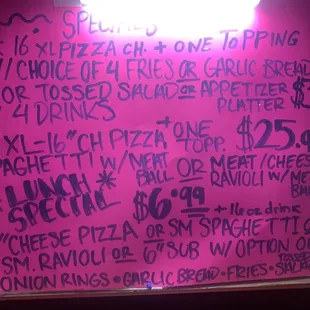 SPECIALS
16 XL PIZZA CH. + ONE TOPPING
W/ CHOICE OF 4 FRIES OR GARLIC BREAD
OR TOSSED SALAD OR APPETIZER PLATTER $
4 DRINKS
XL-16" CH PIZZA + ONE TOPP. $25.9
SPAGHETTI W/ MEAT BALL OR MEAT/CHEESE RAVIOLI W/ MEAT BALL
LUNCH SPECIAL $6.99 + 16 oz drink
"CHEESE PIZZA OR SM SPAGHETTI OR
SM. RAVIOLI OR 6" SUB W/ OPTION OF
ONION RINGS • GARLIC BREAD • FRIES • TOSSED SALAD